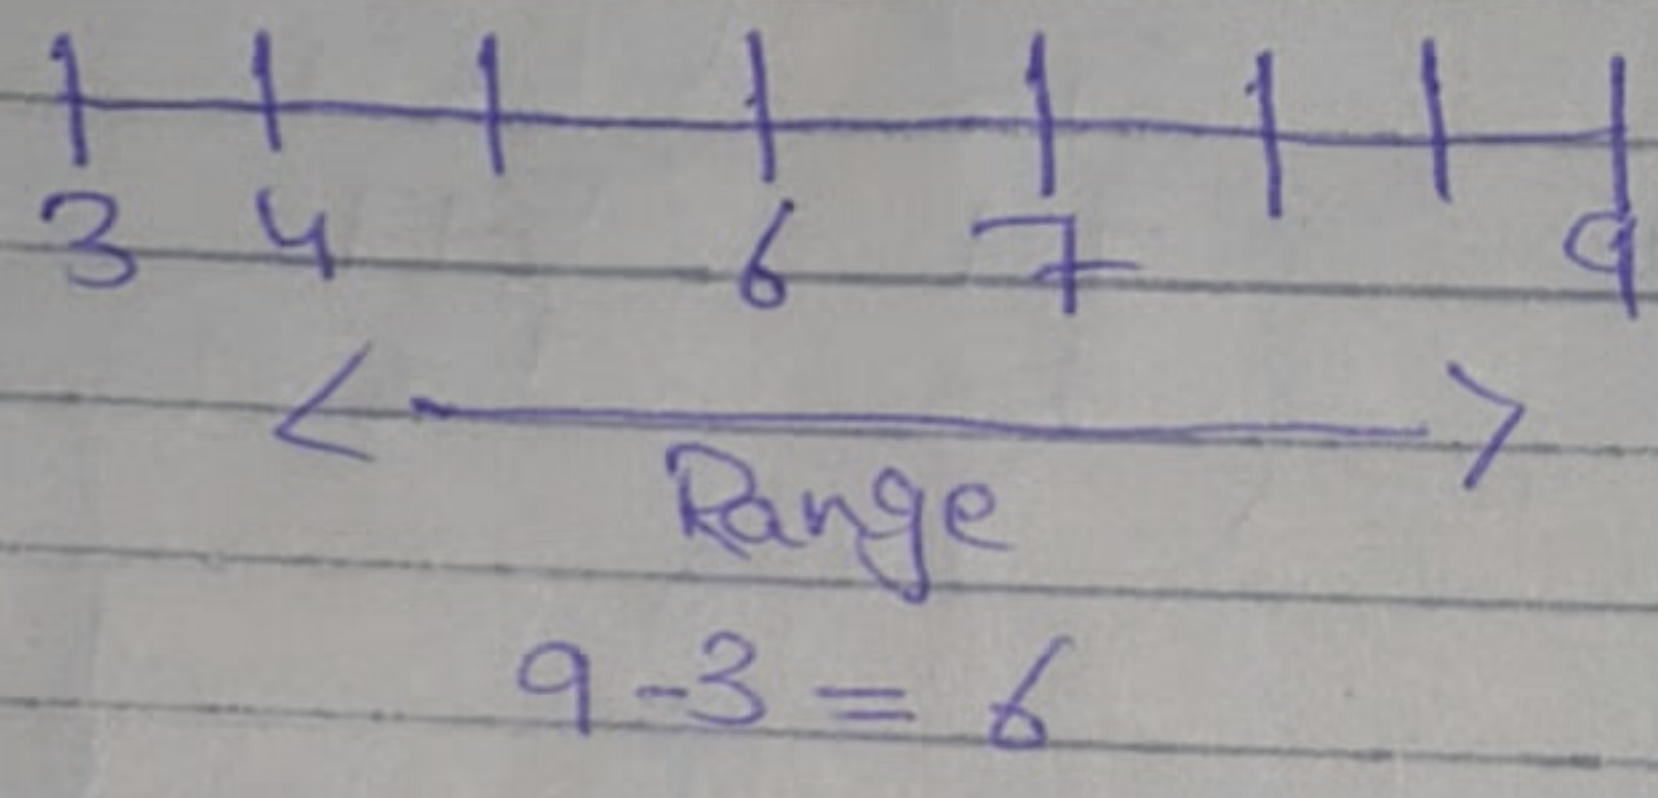 3 4 6 7 9
Range
9 - 3 = 6